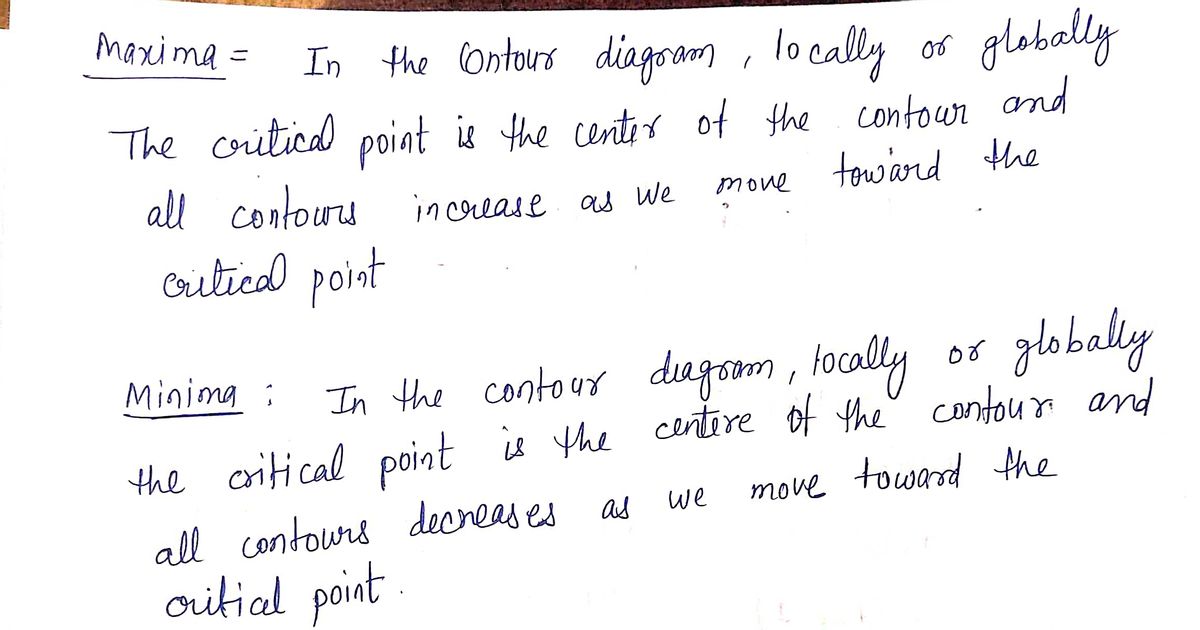 Maxima = In the Contour diagram, locally or globally
The critical point is the center of the contour and
all contours increase as we move toward the
critical point
Minima : In the contour diagram, locally or globally
the critical point is the centere of the contour and
all contours decreases as we move toward the
critical point.